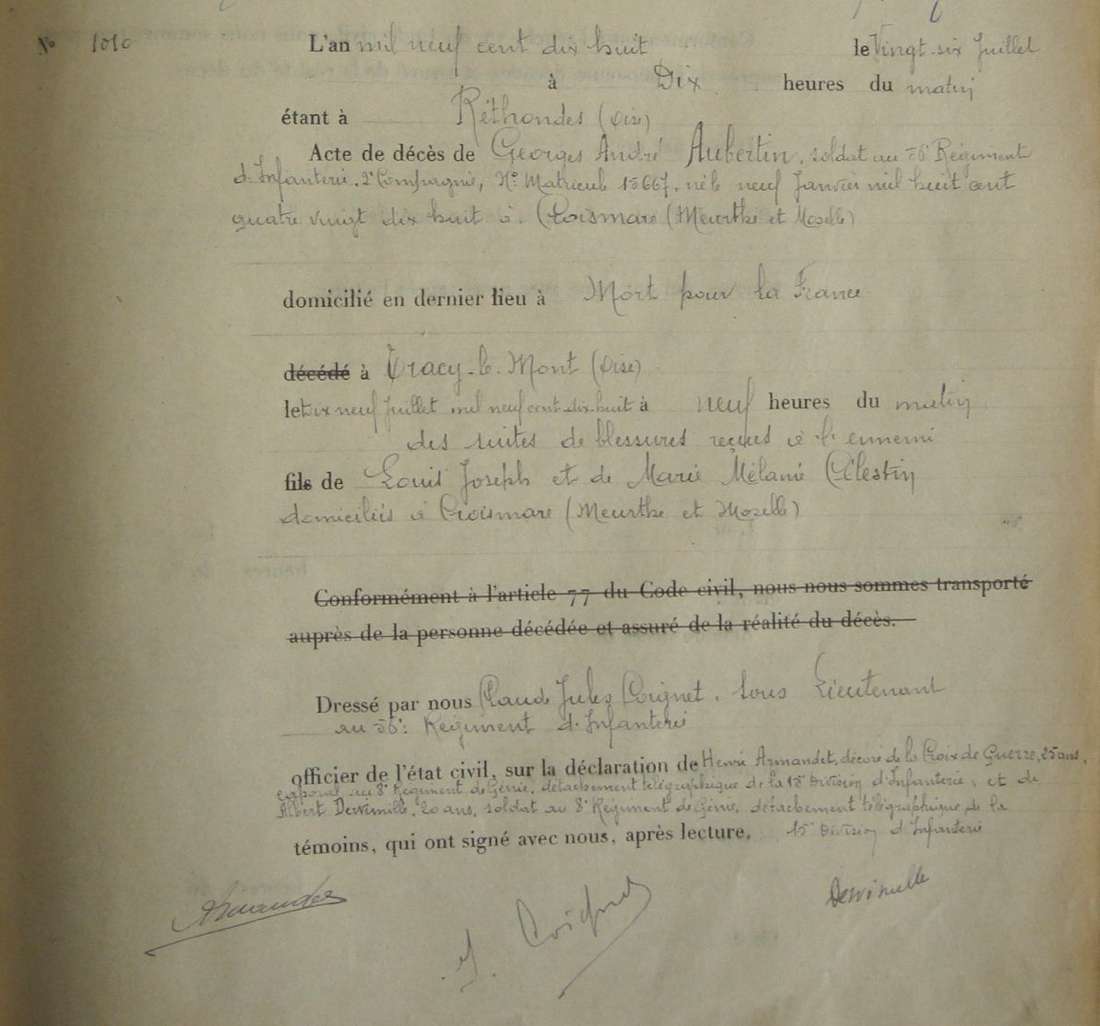 No 1010
L'an mil neuf cent dix huit le Vingt-six Juillet
à Dix heures du matin
étant à Réthondes (Oise)
Acte de décès de Georges André Aubertin, soldat au 56e Régiment
d'Infanterie, 2e Compagnie, No Matricule 15667, né le neuf Janvier mil huit cent
quatre vingt dix huit à Croismare (Meurthe et Moselle)
domicilié en dernier lieu à Mort pour la France
décédé à Tracy-le-Mont (Oise)
le Dix neuf Juillet mil neuf cent dix-huit à neuf heures du matin
des suites de blessures reçues à l'ennemi
fils de Louis Joseph et de Marie Mélanie Célestin
domiciliés à Croismare (Meurthe et Moselle)
Conformément à l'article 77 du Code civil, nous nous sommes transporté
auprès de la personne décédée et assuré de la réalité du décès.
Dressé par nous Claude Jules Coignet, Sous Lieutenant
au 56e Régiment d'Infanterie
officier de l'état civil, sur la déclaration de Henri Armandet, décoré de la Croix de Guerre, 25 ans,
caporal au 8e Régiment de Génie, détachement télégraphique de la 15e Division d'Infanterie, et de
Albert Dewimille, 20 ans, soldat au 8e Régiment de Génie, détachement télégraphique de la
témoins, qui ont signé avec nous, après lecture. 15e Division d'Infanterie
Armandet
J. Coignet
Dewimille